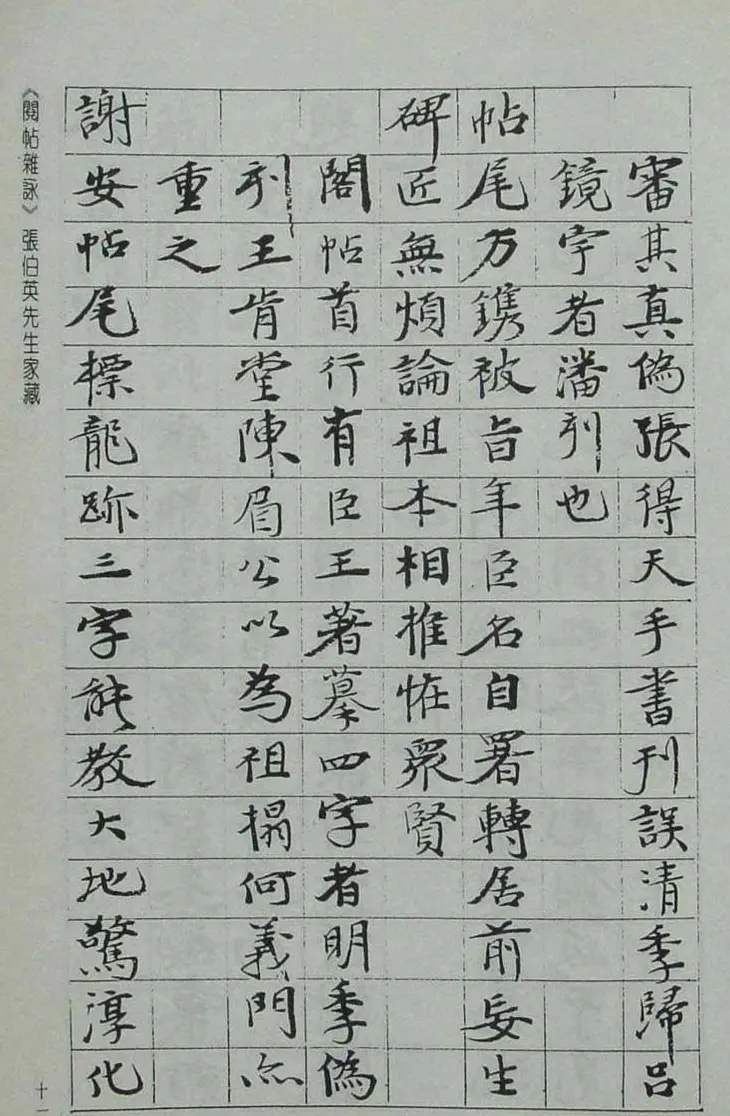 審其真偽張得天手書刊誤清季歸呂
鏡宇者潘刊也
帖尾方鐫被旨年臣名自署轉居前妄生
碑匠無煩論祖本相推恠衆賢
閣帖首行有臣王著摹四字者明季偽
刊王肯堂陳眉公以為祖搨何義門亦
重之
謝安帖尾標龍跡三字能教大地驚淳化
《閱帖雜詠》張伯英先生家藏
十一